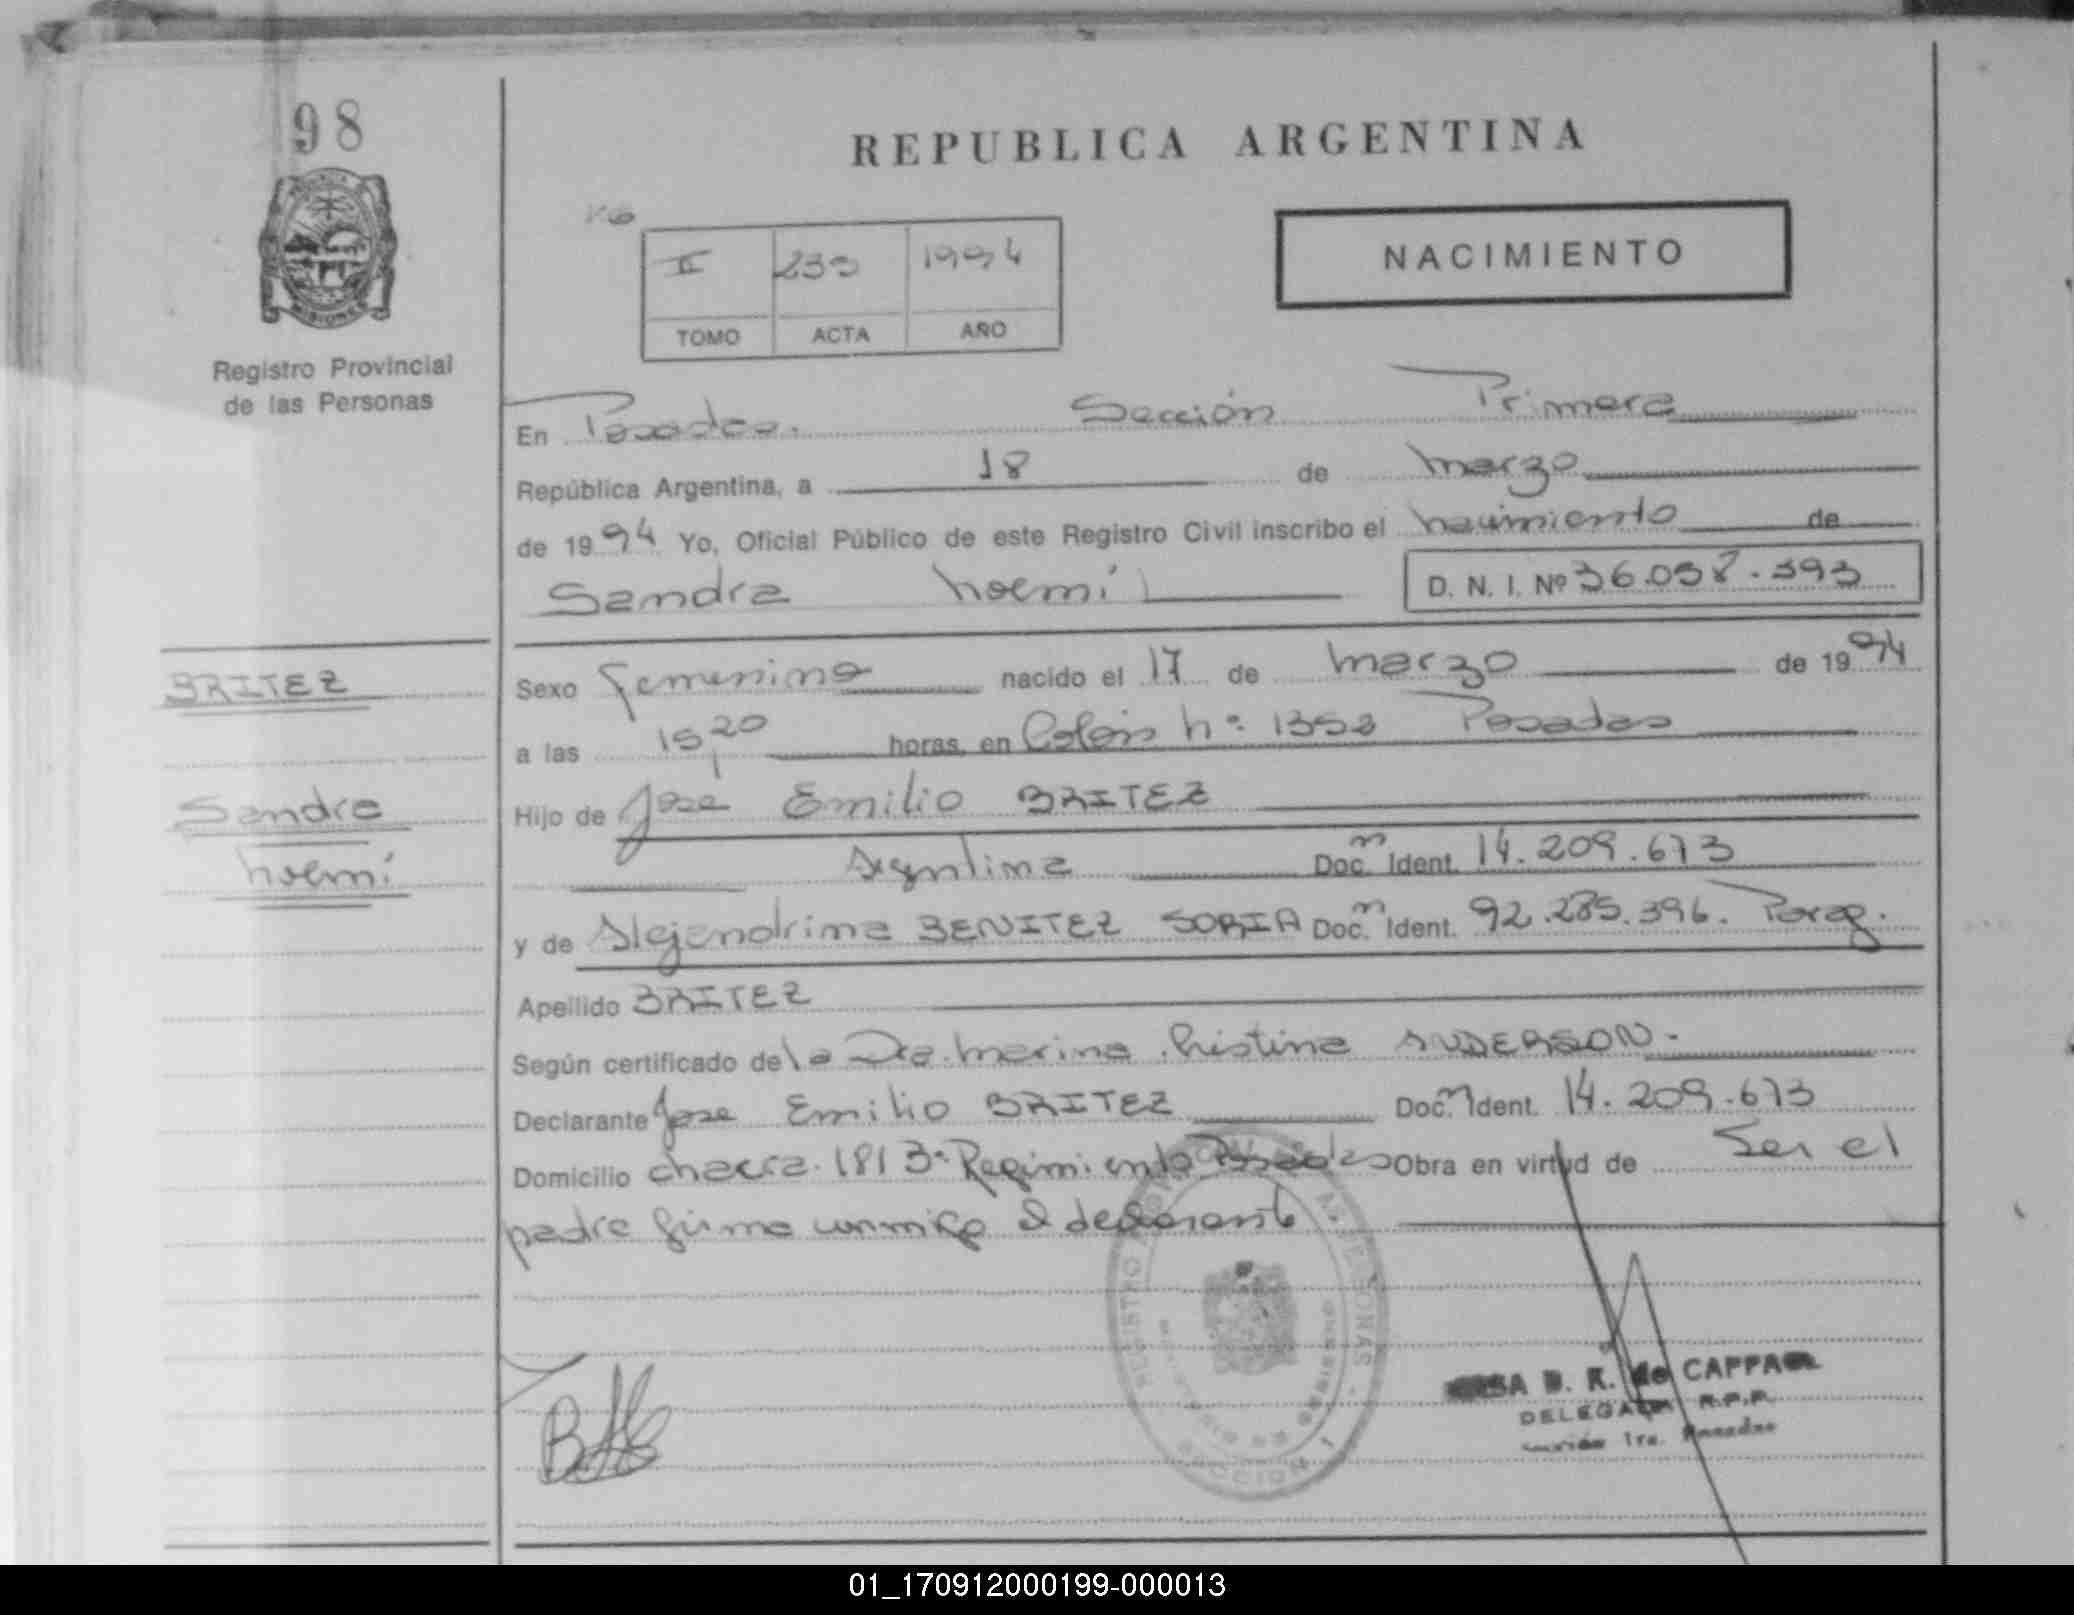 98
REPUBLICA ARGENTINA
NACIMIENTO
II 233 1994
TOMO ACTA AÑO
Registro Provincial
de las Personas
En Posadas. Sección Primera
República Argentina, a 18 de marzo
de 1994 Yo, Oficial Público de este Registro Civil inscribo el nacimiento de
Sandra Noemí D. N. I. Nº 36.058.393
BRITEZ
Sandra
Noemí
Sexo Femenino nacido el 17 de marzo de 1994
a las 15,20 horas, en Colón Nº 1352 Posadas
Hijo de Jose Emilio BRITEZ
Argentina Doc. Ident. 14.209.673
y de Alejandrina BENITEZ SORIA Doc. Ident. 92.285.396. Parag.
Apellido BRITEZ
Según certificado de la Dra. Marina Cristina ANDERSON.-
Declarante Jose Emilio BRITEZ Doc. Ident. 14.209.673
Domicilio chacra 181 3º Regimiento Posadas Obra en virtud de Ser el
padre firma conmigo el declarante
REGISTRO PERSONAS
MISIONES
SECCION 1
D. R. de CAPPA
DELEGADA R.P.P.
Sección 1ra. Posadas
01_170912000199-000013